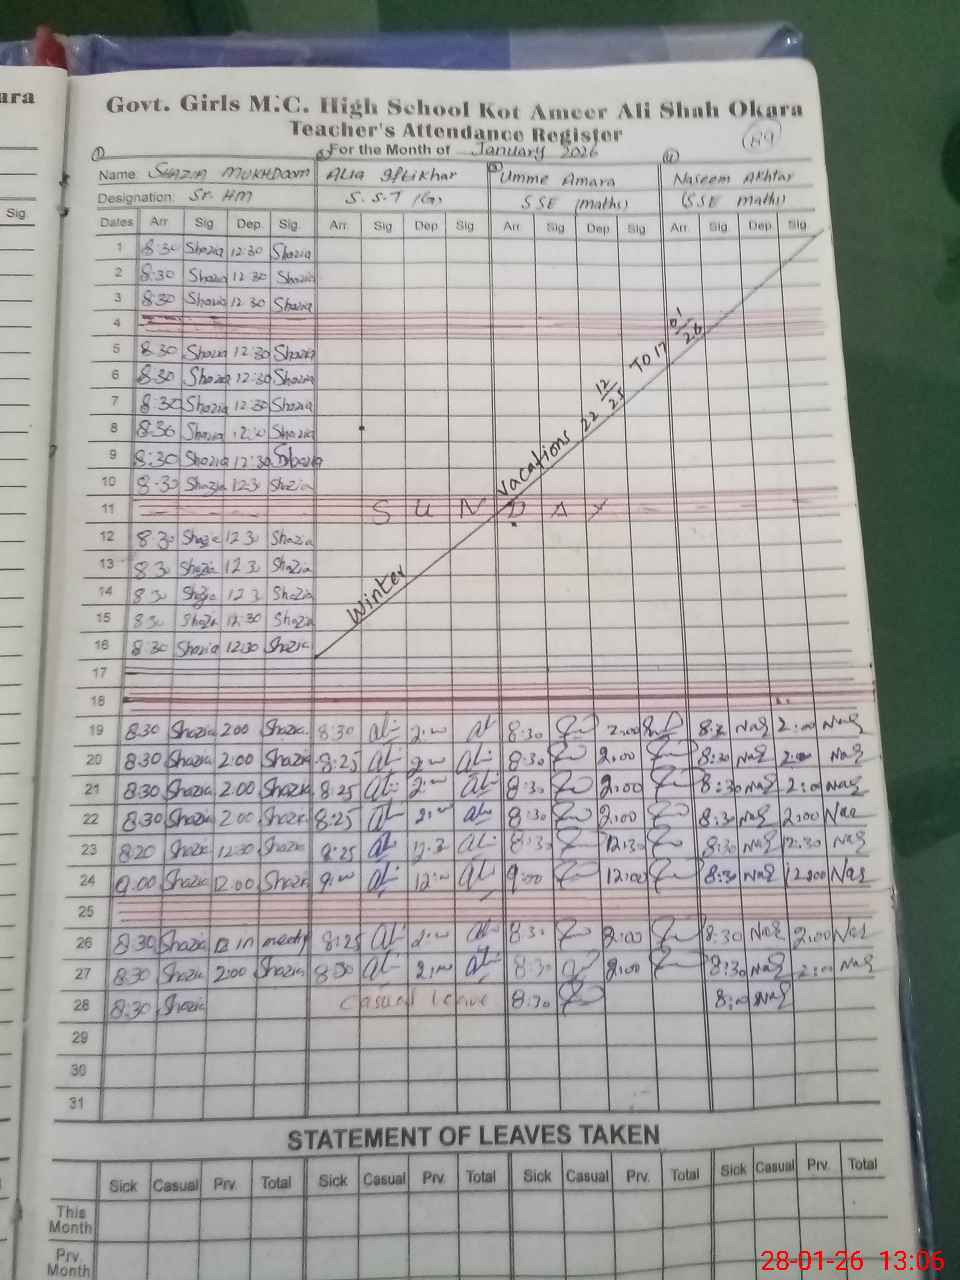 ara
Sig.
Govt. Girls M.C. High School Kot Ameer Ali Shah Okara
Teacher's Attendance Register
For the Month of January 2026
89
Name: Shazia Mukhdoom Alia Iftikhar Umme Amara Naseem Akhtar
Designation: Sr. HM S.S.T (G) SSE (maths) (SSE maths)
Dates Arr. Sig Dep. Sig. Arr. Sig Dep Sig Arr. Sig Dep. Sig Arr. Sig. Dep Sig.
1 8:30 Shazia 12:30 Shazia
2 8:30 Shazia 12:30 Shazia
3 8:30 Shazia 12:30 Shazia
4
5 8:30 Shazia 12:30 Shazia
6 8:30 Shazia 12:30 Shazia
7 8:30 Shazia 12:30 Shazia
8 8:30 Shazia Shazia
9 8:30 Shazia 12:30 Shazia
10 8:30 Shazia 12:3 Shazia
11 SUNDAY
12 8:30 Shazia 12:3 Shazia
13 8:30 Shazia 12:3 Shazia
14 8:3 Shazia 12:3 Shazia
15 8:30 Shazia 12:30 Shazia
16 8:30 Shazia 12:30 Shazia
Winter Vacations 22 12/25 To 17 01/26
17
18
19 8:30 Shazia 2:00 Shazia 8:30 2:00 8:30 2:00 8:3 Nas 2:00 Nas
20 8:30 Shazia 2:00 Shazia 8:25 2:00 8:30 2:00 8:30 Nas 2:00 Nas
21 8:30 Shazia 2:00 Shazia 8:25 2:00 8:30 2:00 8:30 Nas 2:00 Nas
22 8:30 Shazia 2:00 Shazia 8:25 2:00 8:30 2:00 8:30 Nas 2:00 Nas
23 8:20 Shazia 12:30 Shazia 8:25 12:3 8:30 12:30 8:30 Nas 12:30 Nas
24 9:00 Shazia 12:00 Shazia 9:00 12:00 9:00 12:00 8:30 Nas 12:00 Nas
25
26 8:30 Shazia in meeting 8:25 2:00 8:30 2:00 8:30 Nas 2:00 Nas
27 8:30 Shazia 2:00 Shazia 8:30 2:00 8:30 2:00 8:30 Nas 2:00 Nas
28 8:30 Shazia Casual leave 8:30 Nas
29
30
31
STATEMENT OF LEAVES TAKEN
Sick Casual Prv. Total Sick Casual Prv. Total Sick Casual Prv. Total Sick Casual Prv. Total
This
Month
Prv.
Month
28-01-26 13:06